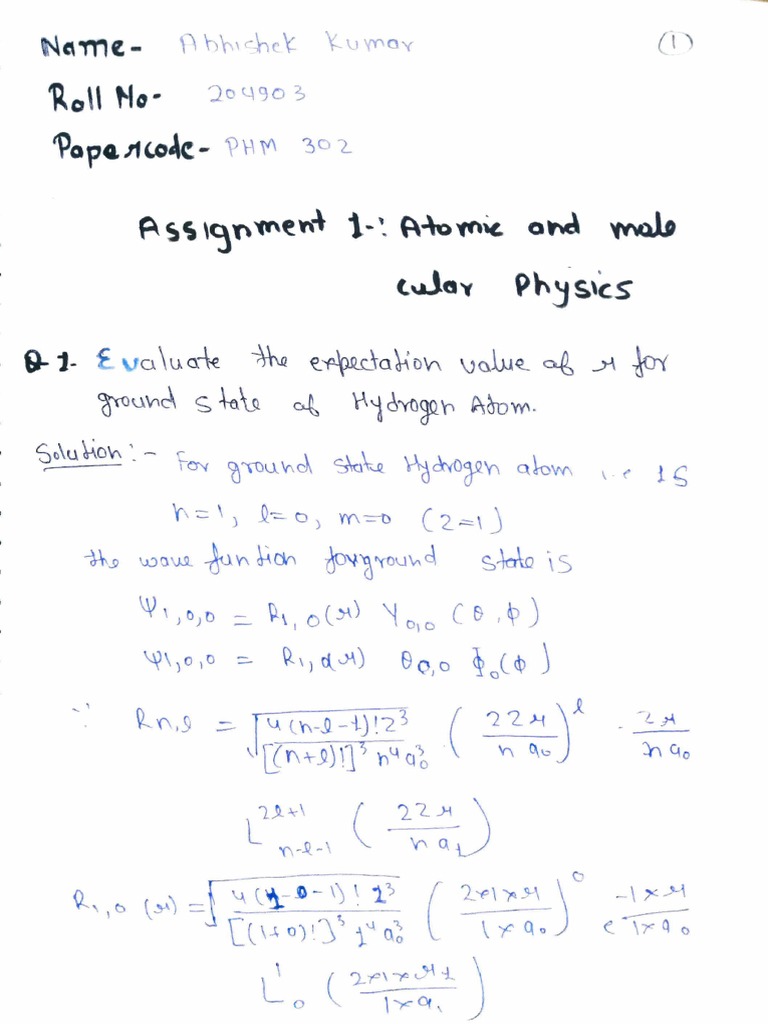 Name- Abhishek Kumar
1
Roll No- 204903
Papercode- PHM 302
Assignment 1-: Atomic and mole
cular Physics
Q 1- Evaluate the expectation value of r for
ground state of Hydrogen Atom.
Solution:- For ground state Hydrogen atom i.e 1S
n=1, l=0, m=0 (Z=1)
the wave funtion forground state is
Ψ1,0,0 = R1,0(r) Y0,0 (θ,ϕ)
Ψ1,0,0 = R1,0(r) Θ0,0 Φ0(ϕ)
∵ Rn,l = √(4(n-l-1)!Z³ / [(n+l)!]³ n⁴a₀³) (2Zr / n a₀)^l · Zr / n a₀
L^{2l+1}_{n-l-1} (2Zr / n a₁)
R1,0 (r) = √(4(1-0-1)! 1³ / [(1+0)!]³ 1⁴ a₀³) (2×1×r / 1×a₀)^0 e^{-1×r / 1×a₀}
L^1_0 (2×1×r1 / 1×a₁)